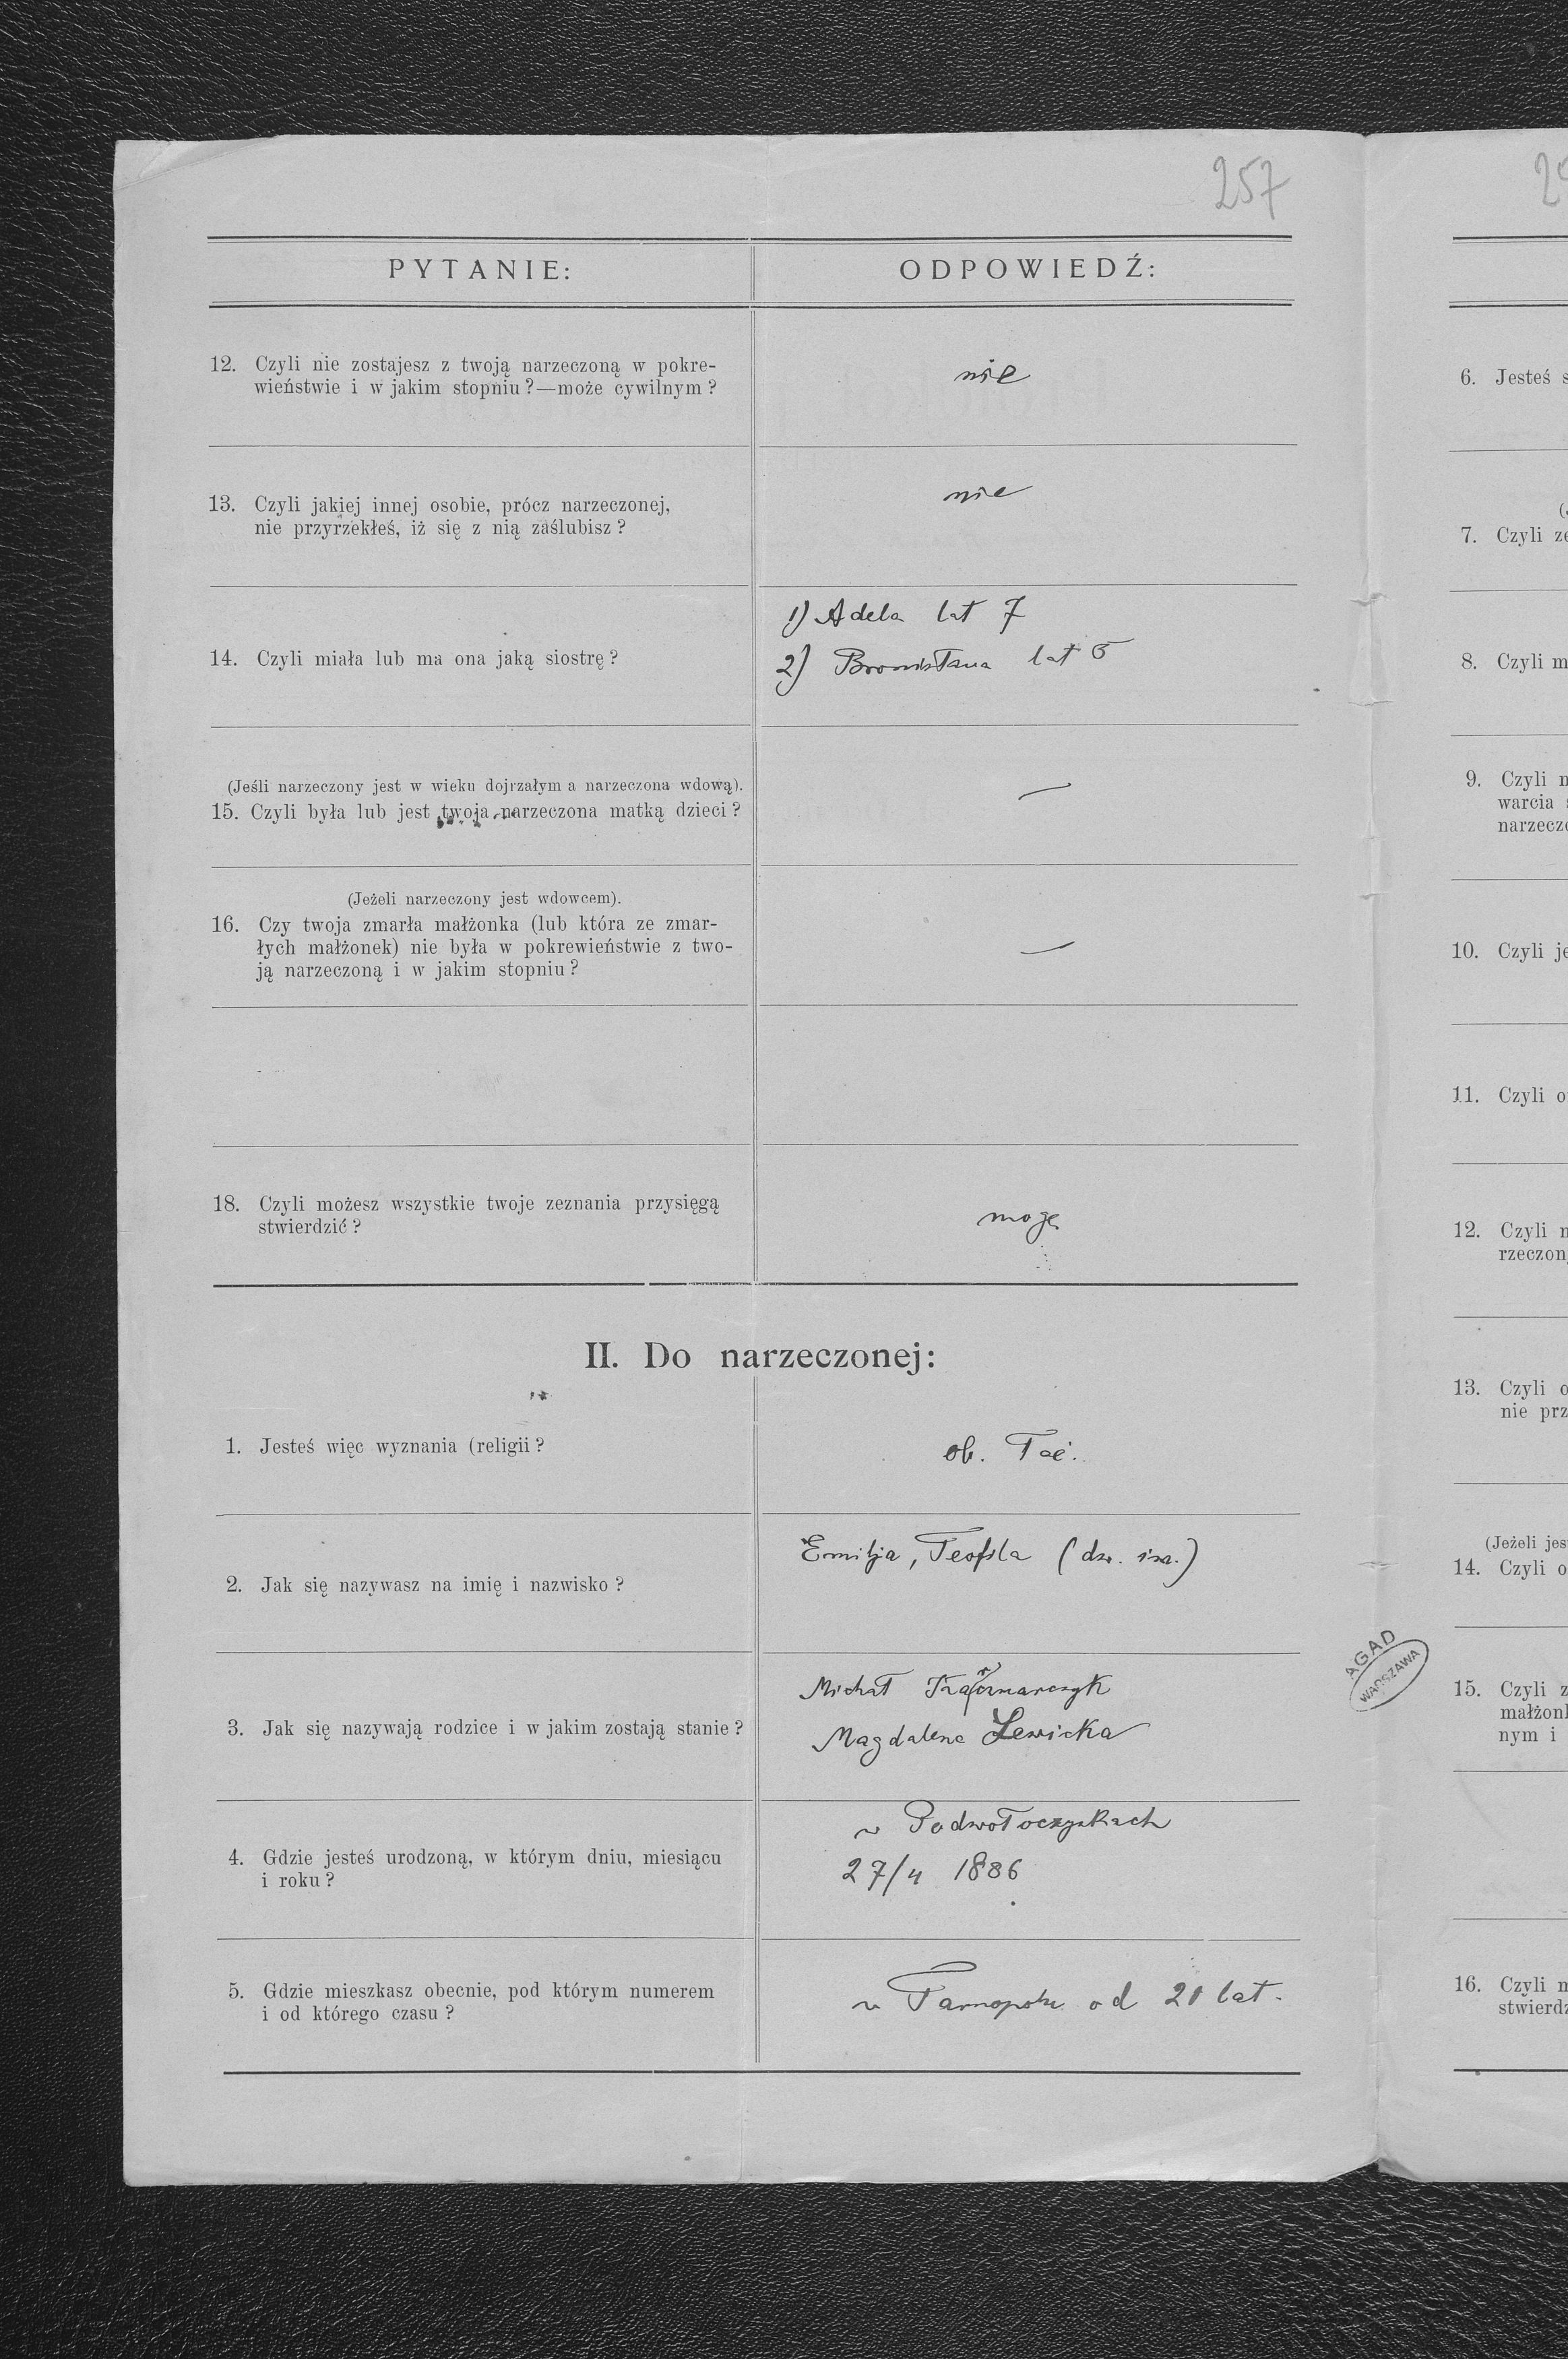 257
PYTANIE:
ODPOWIEDŹ:
12. Czyli nie zostajesz z twoją narzeczoną w pokre-
wieństwie i w jakim stopniu?—może cywilnym?
nie
13. Czyli jakiej innej osobie, prócz narzeczonej,
nie przyrzekłeś, iż się z nią zaślubisz?
nie
14. Czyli miała lub ma ona jaką siostrę?
1) Adela lat 7
2) Bronisława lat 5
(Jeśli narzeczony jest w wieku dojrzałym a narzeczona wdową).
15. Czyli była lub jest twoja narzeczona matką dzieci?
—
(Jeżeli narzeczony jest wdowcem).
16. Czy twoja zmarła małżonka (lub która ze zmar-
łych małżonek) nie była w pokrewieństwie z two-
ją narzeczoną i w jakim stopniu?
—
18. Czyli możesz wszystkie twoje zeznania przysięgą
stwierdzić?
mogę
II. Do narzeczonej:
1. Jesteś więc wyznania (religii?
ob. łac.
2. Jak się nazywasz na imię i nazwisko?
Emilja, Teofila (dw. im.)
3. Jak się nazywają rodzice i w jakim zostają stanie?
Michał
Magdalena Lewicka
4. Gdzie jesteś urodzoną, w którym dniu, miesiącu
i roku?
w Podwołoczyskach
27/4 1886
5. Gdzie mieszkasz obecnie, pod którym numerem
i od którego czasu?
w Tarnopolu od 20 lat.
AGAD
WARSZAWA
6. Jesteś
7. Czyli
8. Czyli
9. Czyli
warcia
10. Czyli
11. Czyli
12. Czyli
13. Czyli
nie
(Jeżeli
14. Czyli
15. Czyli
nym i
16. Czyli